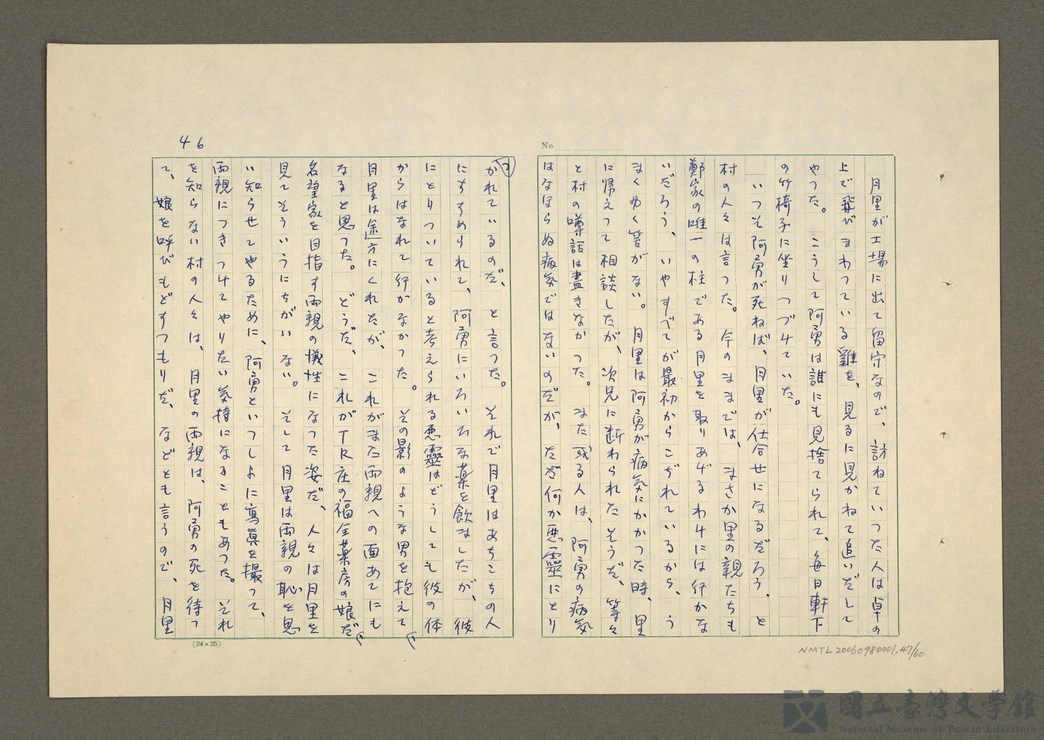 46
No
月里が工場に出て留守なので、訪ねていつた人は卓の
上で飛びまわつている雞を、見るに見かねて追いだして
やつた。こうして阿勇は誰にも見捨てられて、毎日軒下
の竹椅子に坐りつづけていた。
いつそ阿勇が死ねば、月里が仕合せになるだろう、と
村の人々は言つた。今のままでは、まさか里の親たちも
鄭家の唯一の柱である月里を取りあげるわけには行かな
いだろう、いやすべてが最初からこぢれているから、う
まくゆく筈がない。月里は阿勇が病気にかかつた時、里
に帰えつて相談したが、次兄に断わられたそうだ、等々
と村の噂話は盡きなかつた。また或る人は、阿勇の病気
はなほらぬ病気ではないのだが、ただ何か悪靈にとり
つかれているのだ、と言つた。それで月里はあちこちの人
にすすめられて、阿勇にいろいろな薬を飲ましたが、彼
にとりついていると考えられる悪靈はどうしても彼の体
からはなれて行かなかつた。その影のような男を抱えて
月里は途方にくれたが、これがまた両親への面あてにも
なると思つた。どうだ、これがTR庄の福全薬房の娘だ、
名望家を目指す両親の犠牲になつた姿だ、人々は月里を
見てそういうにちがいない。そして月里は両親の恥を思
い知らせてやるために、阿勇といつしよに寫眞を撮つて、
両親につきつけてやりたい気持になることもあつた。それ
を知らない村の人々は、月里の両親は、阿勇の死を待つ
て、娘を呼びもどすつもりだ、などとも言うので、月里
(24×25)
NMTL20060980001,47/60
國立臺灣文學館
National Museum of Taiwan Literature